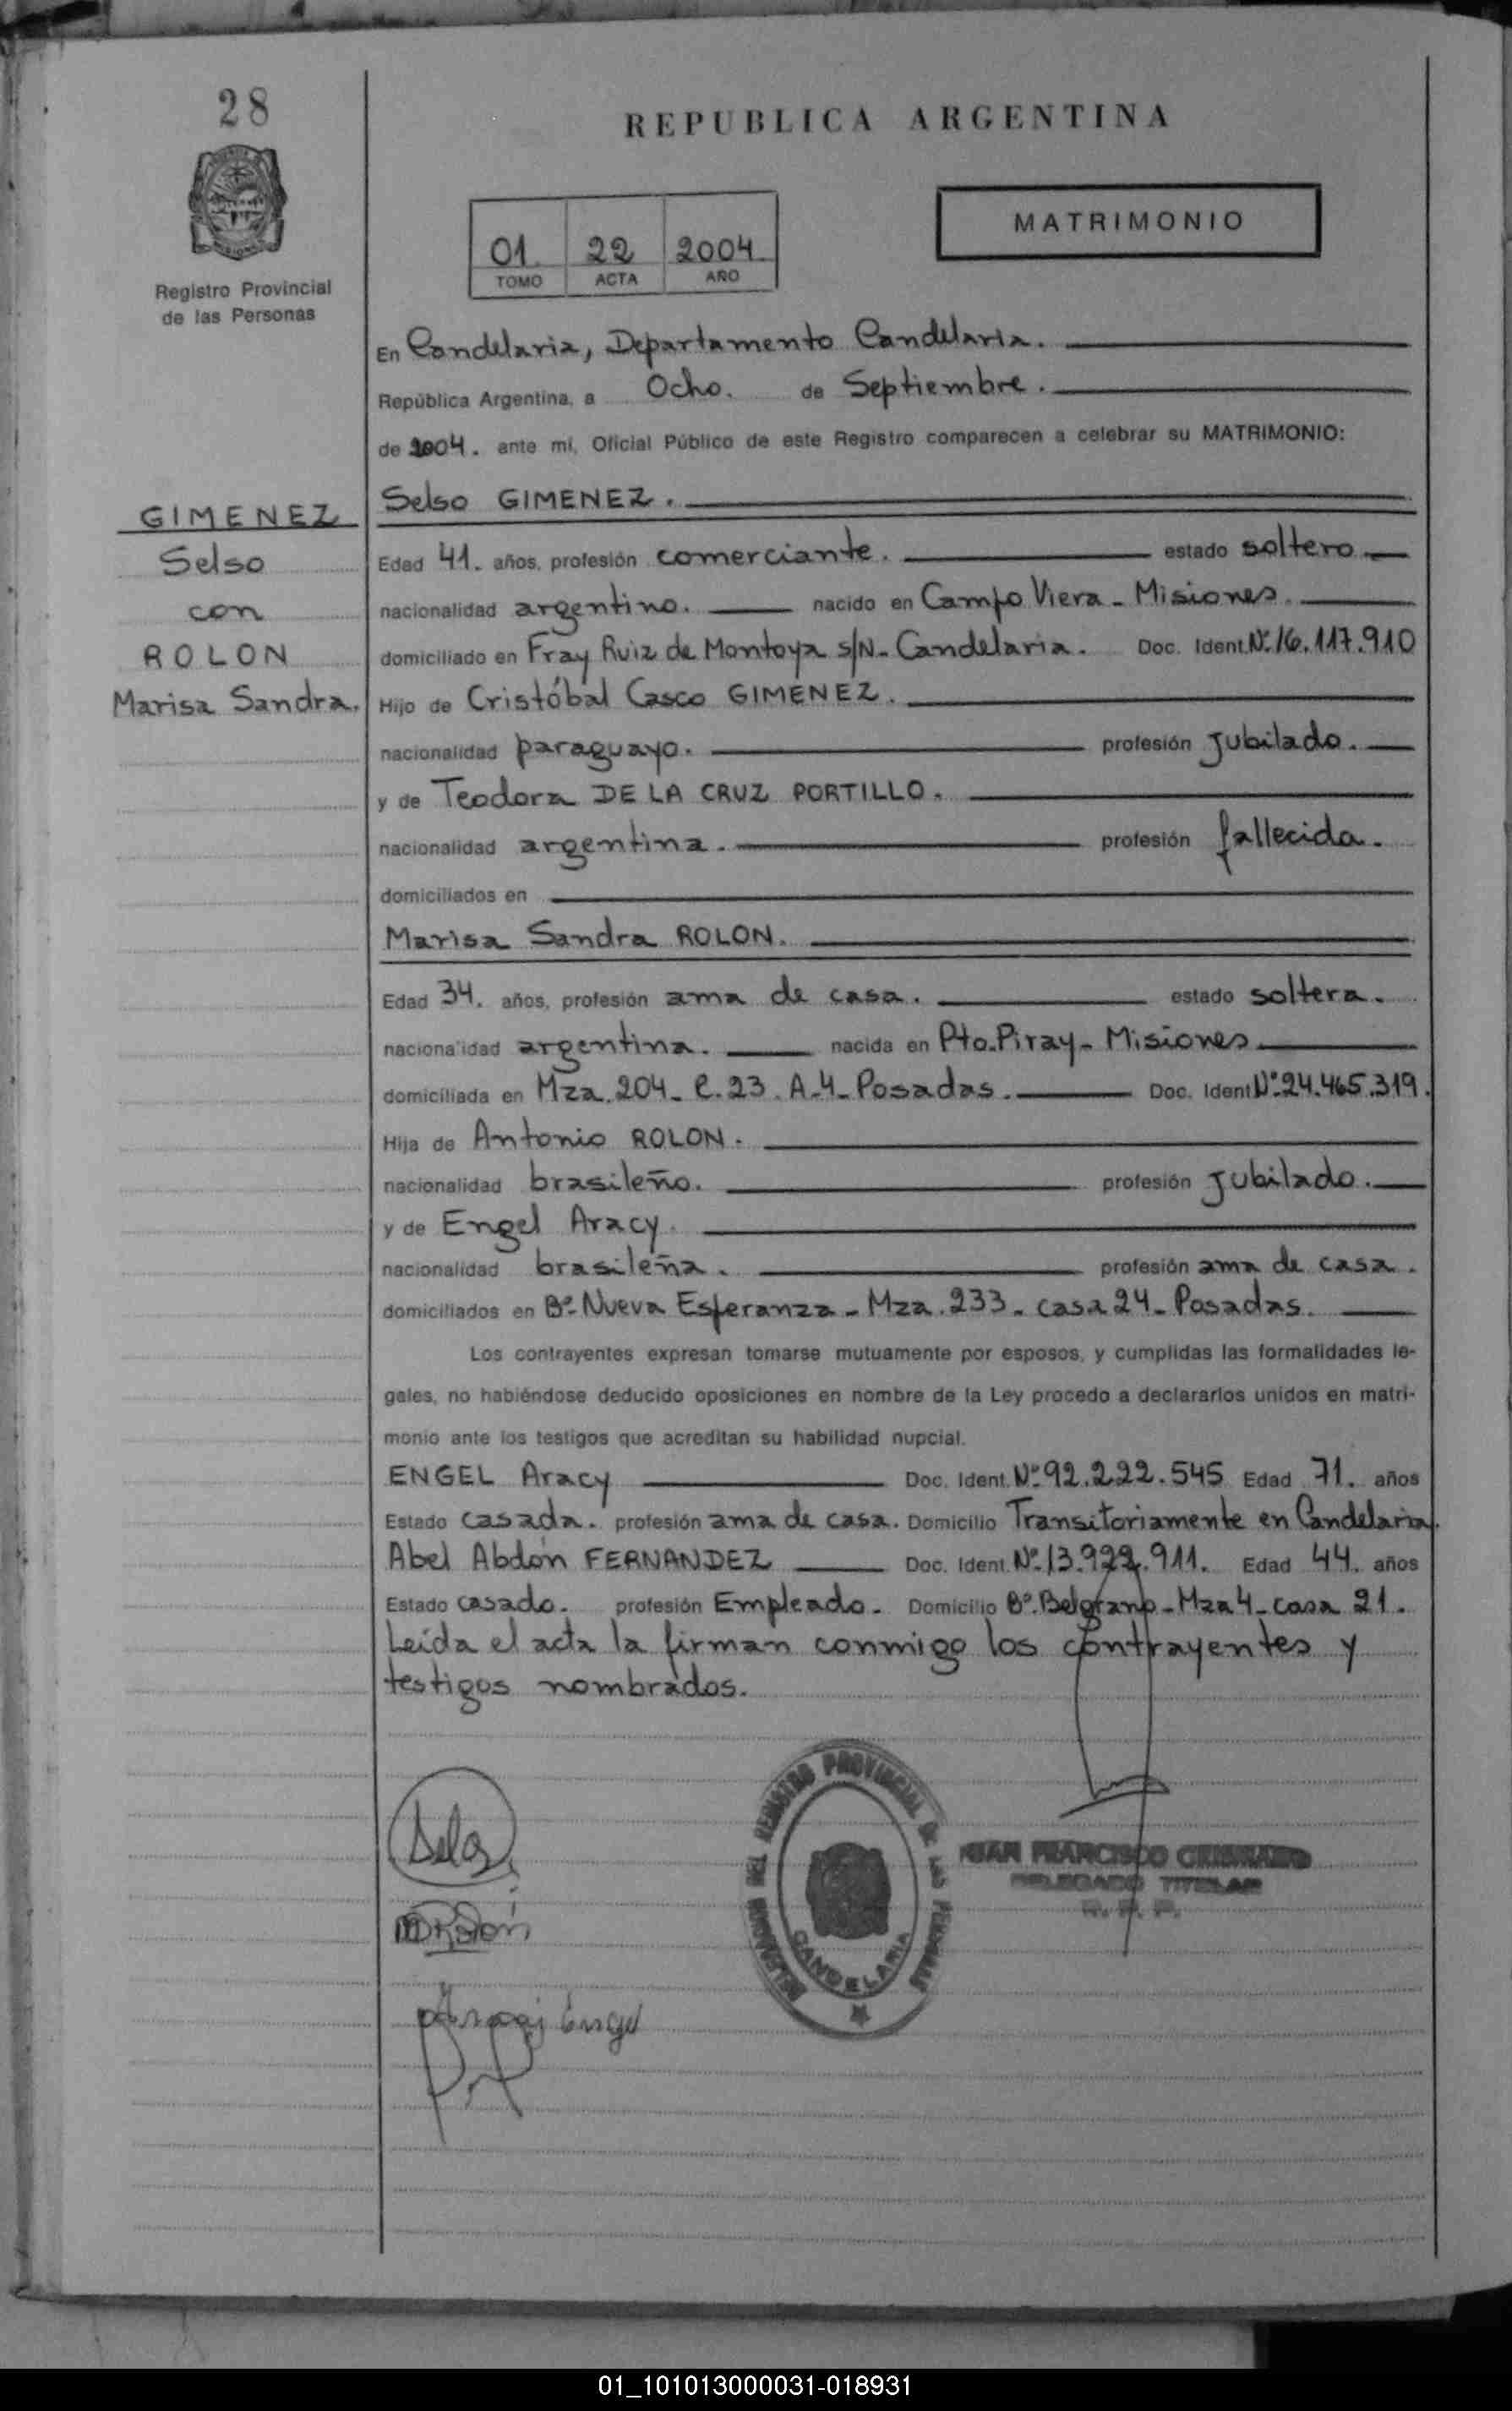 28
REPUBLICA ARGENTINA
MATRIMONIO
01 22 2004
TOMO ACTA AÑO
Registro Provincial
de las Personas
En Candelaria, Departamento Candelaria.
República Argentina, a Ocho. de Septiembre.
de 2004. ante mí, Oficial Público de este Registro comparecen a celebrar su MATRIMONIO:
GIMENEZ
Selso
con
ROLON
Marisa Sandra.
Selso GIMENEZ.
Edad 41. años, profesión comerciante. estado soltero
nacionalidad argentino. nacido en Campo Viera - Misiones.
domiciliado en Fray Ruiz de Montoya s/N - Candelaria. Doc. Ident. Nº 16.117.910
Hijo de Cristóbal Casco GIMENEZ.
nacionalidad paraguayo. profesión Jubilado.
y de Teodora DE LA CRUZ PORTILLO.
nacionalidad argentina. profesión fallecida.
domiciliados en
Marisa Sandra ROLON.
Edad 34. años, profesión ama de casa. estado soltera.
nacionalidad argentina. nacida en Pto. Piray - Misiones
domiciliada en Mza. 204 - C. 23. A-4 - Posadas. Doc. Ident. Nº 24.465.319.
Hija de Antonio ROLON.
nacionalidad brasileño. profesión Jubilado.
y de Engel Aracy.
nacionalidad brasileña. profesión ama de casa.
domiciliados en Bº Nueva Esperanza - Mza. 233 - casa 24 - Posadas.
Los contrayentes expresan tomarse mutuamente por esposos, y cumplidas las formalidades le-
gales, no habiéndose deducido oposiciones en nombre de la Ley procedo a declararlos unidos en matri-
monio ante los testigos que acreditan su habilidad nupcial.
ENGEL Aracy Doc. Ident. Nº 92.222.545 Edad 71. años
Estado casada. profesión ama de casa. Domicilio Transitoriamente en Candelaria.
Abel Abdón FERNANDEZ Doc. Ident. Nº 13.922.911. Edad 44. años
Estado casado. profesión Empleado. Domicilio Bº. Belgrano - Mza 4 - casa 21.
Leída el acta la firman conmigo los contrayentes y
testigos nombrados.
DELEGACION DEL REGISTRO PROVINCIAL DE LAS PERSONAS
CANDELARIA
JUAN FRANCISCO
DELEGADO TITULAR
R. P. P.
Aracy Engel
01_101013000031-018931